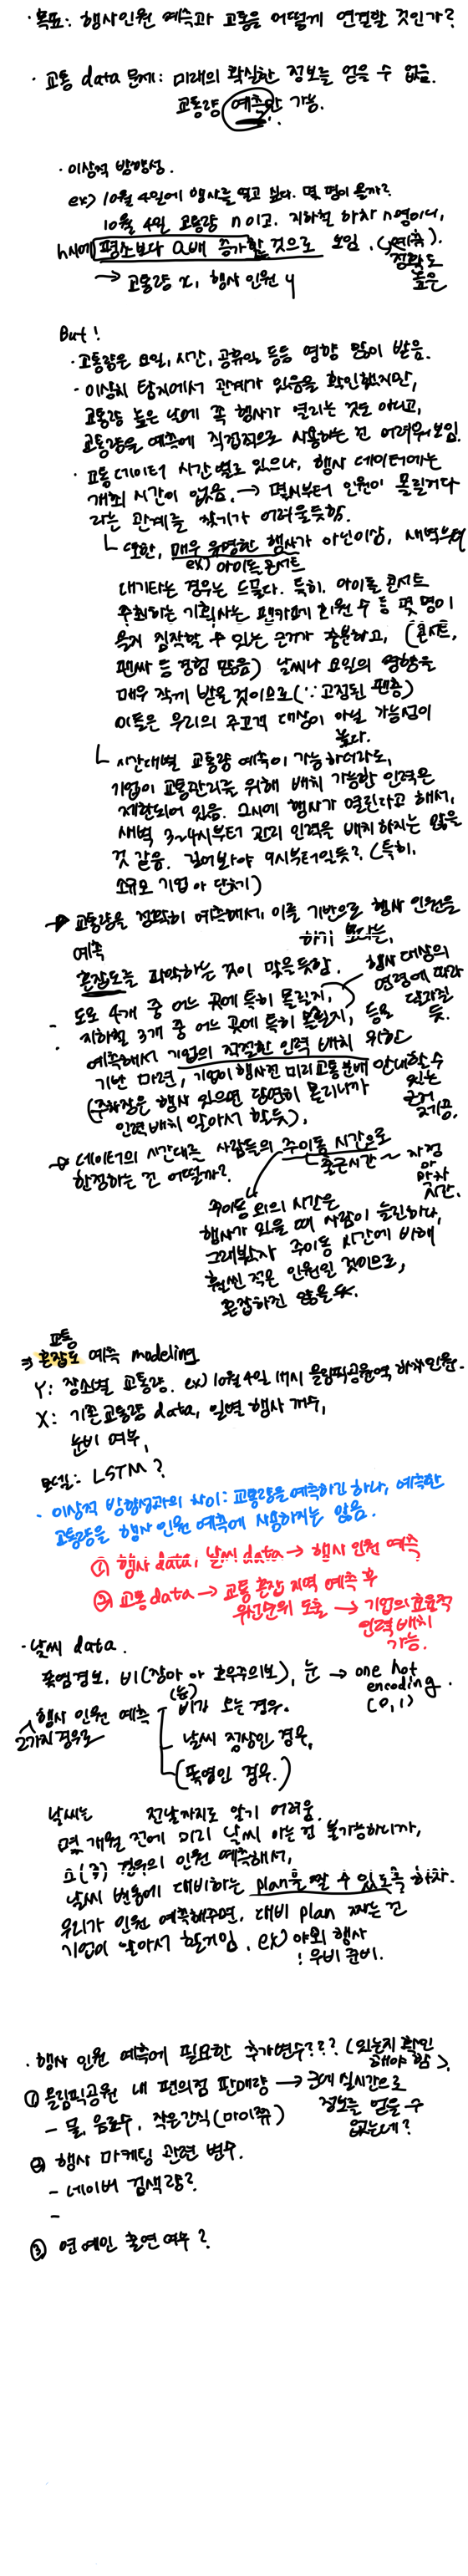 · 목표: 행사인원 예측과 교통을 어떻게 연결할 것인가?
· 교통 data 문제: 미래의 확실한 정보를 얻을 수 없음.
교통량 예측만 가능.
· 이상적 방향성.
ex) 10월 4일에 행사를 열고 싶다. 몇 명이 올까?
10월 4일 교통량 n이고, 지하철 하차 n명이니,
h시에 평소보다 a배 증가할 것으로 보임. (예측).
정확도 높은
→ 교통량 x, 행사 인원 y
But!
· 교통량은 요일, 시간, 공휴일 등등 영향 많이 받음.
· 이상치 탐지에서 관계가 있음을 확인했지만,
교통량 높은 날에 꼭 행사가 열리는 것도 아니고,
교통량을 예측에 직접적으로 사용하는 건 어려워보임.
· 교통 데이터 시간별로 있으나, 행사 데이터에는
개최 시간이 없음. → 몇시부터 인원이 몰릴거다
라는 관계를 찾기가 어려울듯함.
또한, 매우 유명한 행사가 아닌이상, 새벽부터
ex) 아이돌 콘서트
대기타는 경우는 드물다. 특히, 아이돌 콘서트
주최하는 기획사는 팬카페 회원 수 등 몇 명이
올지 짐작할 수 있는 근거가 충분하고, (콘서트,
팬싸 등 경험 많음) 날씨나 요일의 영향을
매우 작게 받을 것이므로 (∵ 고정된 팬층)
이들은 우리의 주고객 대상이 아닐 가능성이
높다.
시간대별 교통량 예측이 가능하더라도,
기업이 교통관리를 위해 배치 가능한 인력은
제한되어 있음. 2시에 행사가 열린다고 해서,
새벽 3~4시부터 관리 인력을 배치하지는 않을
것 같음. 길어봐야 9시부터일듯? (특히,
소규모 기업 or 단체)
→ 교통량을 정확히 예측해서, 이를 기반으로 행사 인원을
예측하기 보다는,
혼잡도를 파악하는 것이 맞을듯함.
- 도로 4개 중 어느 곳에 특히 몰릴지,
· 지하철 3개 중 어느 곳에 특히 몰릴지, 등을
행사 대상의 연령에 따라 달라질 듯.
예측해서 기업의 적절한 인력 배치 위한
기반 마련, 기업이 행사전 미리 교통 분배 안내할 수
있는 근거 제공.
(주차장은 행사 있으면 당연히 몰리니까
인력배치 알아서 할듯).
→ 데이터의 시간대를 사람들의 주이동 시간으로
한정하는 건 어떨까?
출근시간 ~ 자정 or 막차 시간.
주이동 외의 시간은
행사가 있을 때 사람이 늘긴하나,
그래봤자 주이동 시간에 비해
훨씬 적은 인원일 것이므로,
혼잡하진 않을듯.
⇒ 교통 혼잡도 예측 modeling
Y: 장소별 교통량. ex) 10월 4일 17시 올림픽공원역 하차인원.
X: 기존 교통량 data, 일별 행사 개수,
눈비 여부,
모델: LSTM?
· 이상적 방향성과의 차이: 교통량을 예측하긴 하나, 예측한
교통량을 행사 인원 예측에 사용하지는 않음.
① 행사 data, 날씨 data → 행사 인원 예측
② 교통 data → 교통 혼잡 지역 예측 후
우선순위 도출 → 기업의 효율적
인력 배치
가능.
· 날씨 data.
폭염경보, 비(장마 or 호우주의보), 눈 → one hot
encoding.
(0, 1)
행사 인원 예측
2가지 경우로
비가 오는 경우.
(눈)
날씨 정상인 경우,
(폭염인 경우.)
날씨는 전날까지도 알기 어려움.
몇 개월 전에 미리 날씨 아는 건 불가능하니까,
경우의 인원 예측해서,
날씨 변동에 대비하는 plan을 짤 수 있도록 하자.
우리가 인원 예측해주면, 대비 plan 짜는 건
기업이 알아서 할거임. ex) 야외 행사
: 우비 준비.
· 행사 인원 예측에 필요한 추가변수??? (있는지 확인
해야 함).
① 올림픽공원 내 편의점 판매량 → 근데 실시간으로
정보를 얻을 수
없는데?
- 물, 음료수, 작은간식 (마이쮸)
② 행사 마케팅 관련 변수.
- 네이버 검색량?
-
③ 연예인 출연 여부?